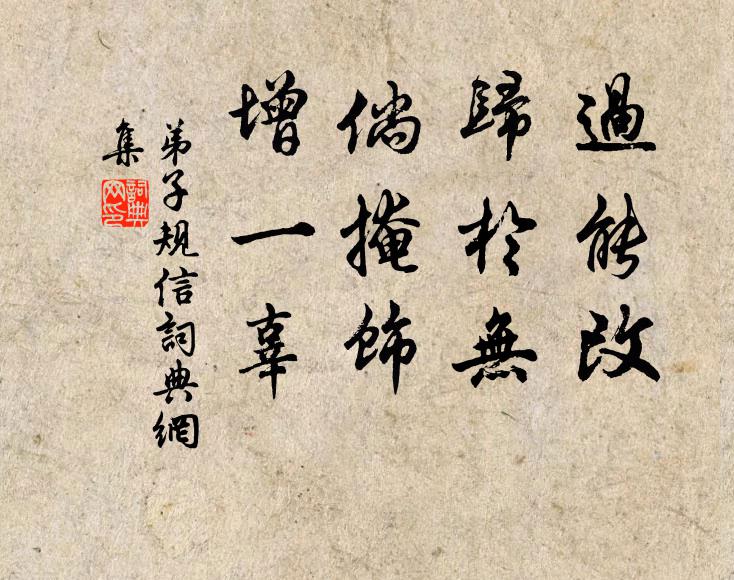 過能改
歸於無
倘掩飾
增一辜
弟子規信詞典網
集
詞典
网印